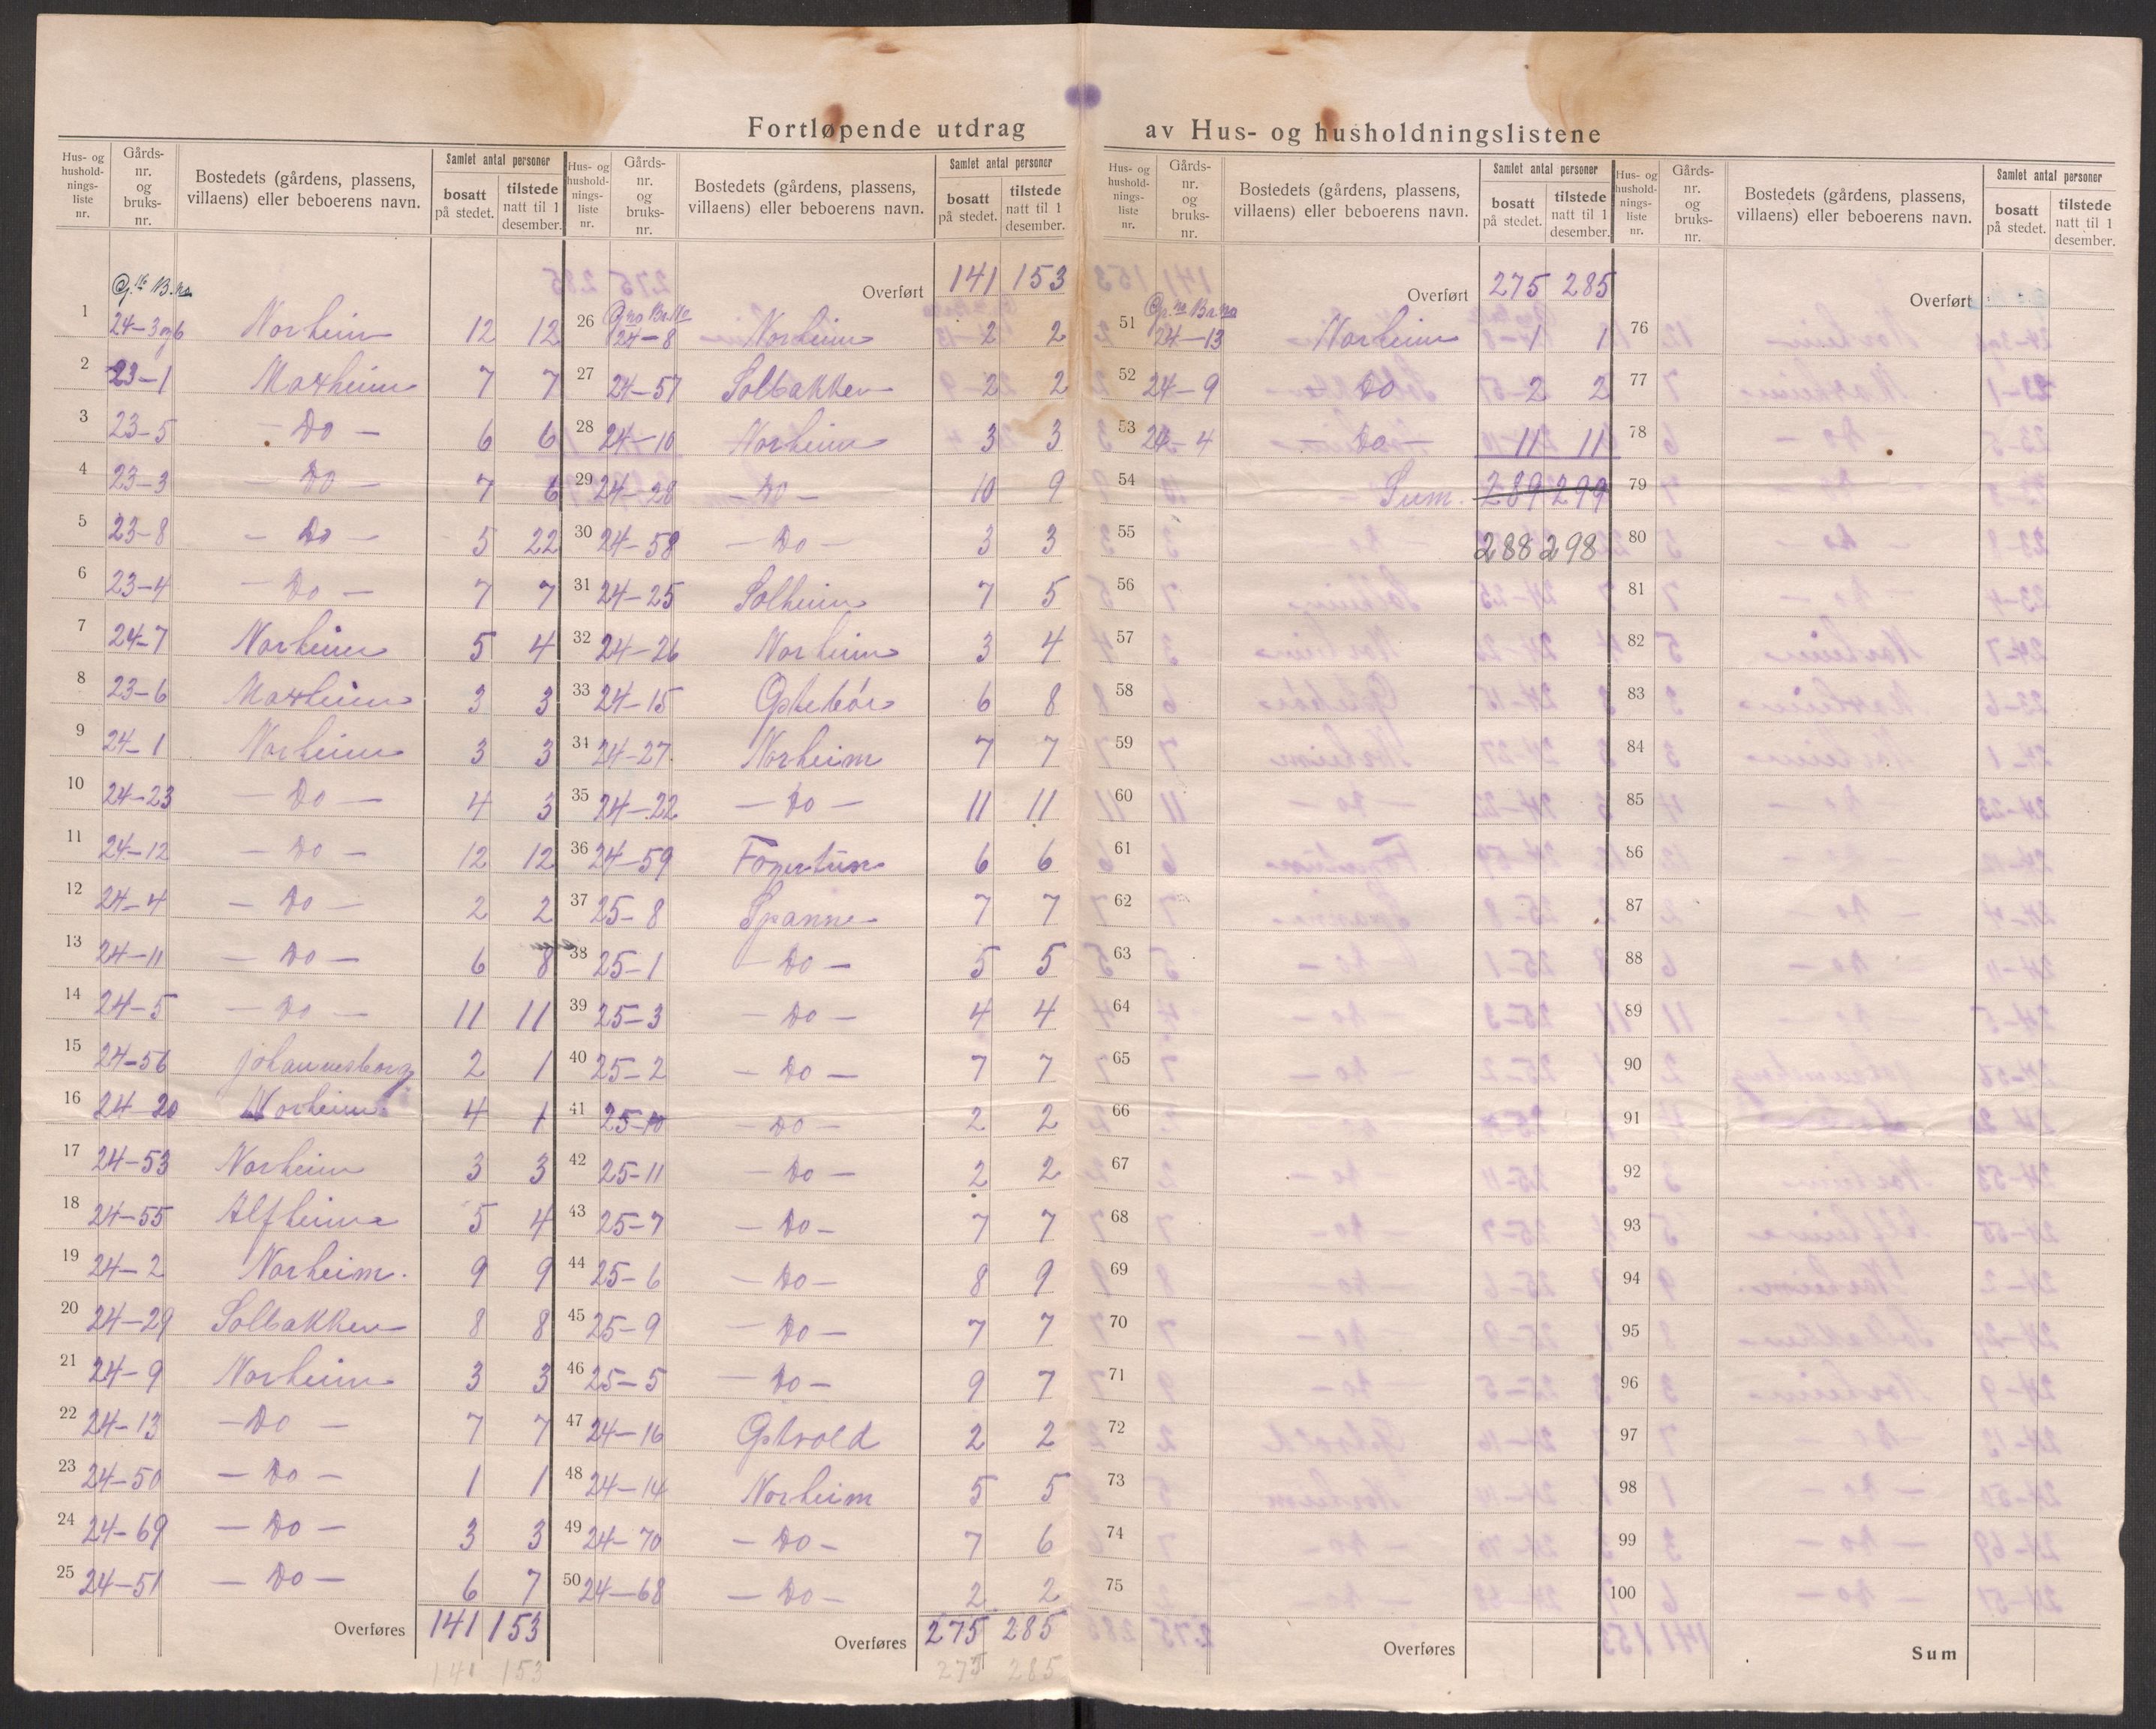 Fortløpende utdrag av Hus- og husholdningslistene
Hus- og husholdningsliste nr. | Gårds-nr. og bruks-nr. | Bostedets (gårdens, plassens, villaens) eller beboerens navn. | Samlet antal personer: bosatt på stedet. | tilstede natt til 1 desember.
G.no B.no
1 24-3og6 Norheim 12 12
2 23-1 Moxheim 7 7
3 23-5 - Do - 6 6
4 23-3 - Do - 7 6
5 23-8 - Do - 5 22
6 23-4 - Do - 7 7
7 24-7 Norheim 5 4
8 23-6 Moxheim 3 3
9 24-1 Norheim 3 3
10 24-23 - Do - 4 3
11 24-12 - Do - 12 12
12 24-4 - Do - 2 2
13 24-11 - Do - 6 8
14 24-5 - Do - 11 11
15 24-56 Johannesborg 2 1
16 24 20 Norheim 4 1
17 24-53 Norheim 3 3
18 24-55 Alfheim 5 4
19 24-2 Norheim. 9 9
20 24-29 Solbakken 8 8
21 24-9 Norheim 3 3
22 24-13 - Do - 7 7
23 24-50 - Do - 1 1
24 24-69 - Do - 3 3
25 24-51 - Do - 6 7
Overføres 141 153
141 153
Hus- og husholdningsliste nr. | Gårds-nr. og bruks-nr. | Bostedets (gårdens, plassens, villaens) eller beboerens navn. | Samlet antal personer: bosatt på stedet. | tilstede natt til 1 desember.
Overført 141 153
G.no Br.No
26 24-8 Norheim 2 2
27 24-57 Solbakken 2 2
28 24-10 Norheim 3 3
29 24-28 - Do - 10 9
30 24-58 - Do - 3 3
31 24-25 Solheim 7 5
32 24-26 Norheim 3 4
33 24-15 6 8
34 24-27 Norheim 7 7
35 24-22 - Do - 11 11
36 24-59 Fagertun 6 6
37 25-8 Spanne 7 7
38 25-1 - Do - 5 5
39 25-3 - Do - 4 4
40 25-2 - Do - 7 7
41 25-10 - Do - 2 2
42 25-11 - Do - 2 2
43 25-7 - Do - 7 7
44 25-6 - Do - 8 9
45 25-9 - Do - 7 7
46 25-5 - Do - 9 7
47 24-16 2 2
48 24-14 Norheim 5 5
49 24-70 - Do - 7 6
50 24-68 - Do - 2 2
Overføres 275 285
275 285
Hus- og husholdningsliste nr. | Gårds-nr. og bruks-nr. | Bostedets (gårdens, plassens, villaens) eller beboerens navn. | Samlet antal personer: bosatt på stedet. | tilstede natt til 1 desember.
Overført 275 285
Gr.no Br.no
51 24-13 Norheim 1 1
52 24-9 Do 2 2
53 24-4 - Do - 11 11
54 Sum. 289 299
55 288 298
56
57
58
59
60
61
62
63
64
65
66
67
68
69
70
71
72
73
74
75
Overføres
Hus- og husholdningsliste nr. | Gårds-nr. og bruks-nr. | Bostedets (gårdens, plassens, villaens) eller beboerens navn. | Samlet antal personer: bosatt på stedet. | tilstede natt til 1 desember.
Overført
76
77
78
79
80
81
82
83
84
85
86
87
88
89
90
91
92
93
94
95
96
97
98
99
100
Sum